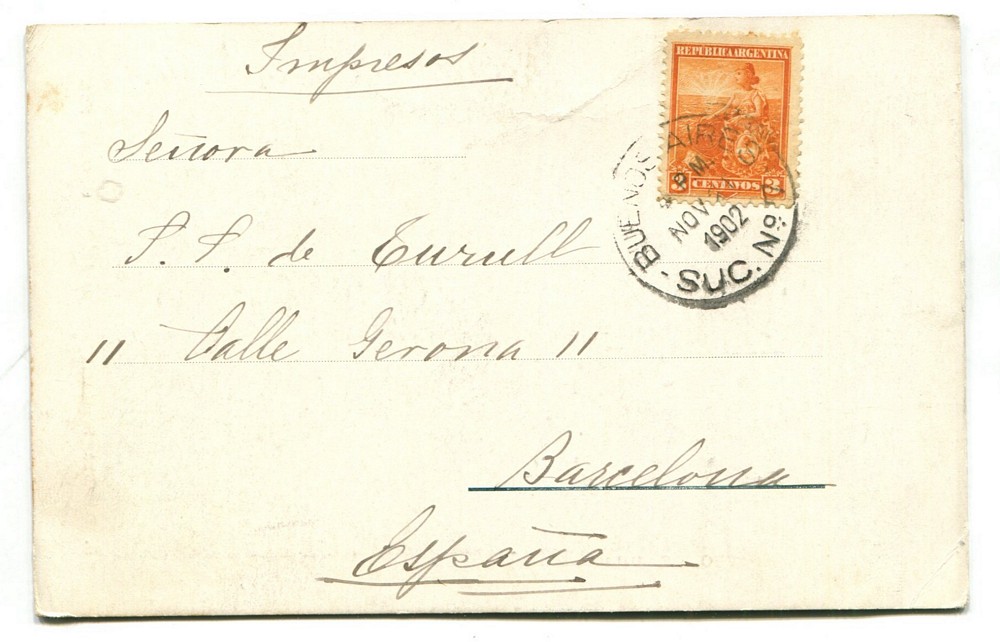 Impresos
Señora
S. S. de Turull
" Calle Gerona 11
Barcelona
España
REPUBLICA ARGENTINA
3 CENTAVOS 3
BUENOS AIRES
PM.
NOV
1902
SUC. Nº